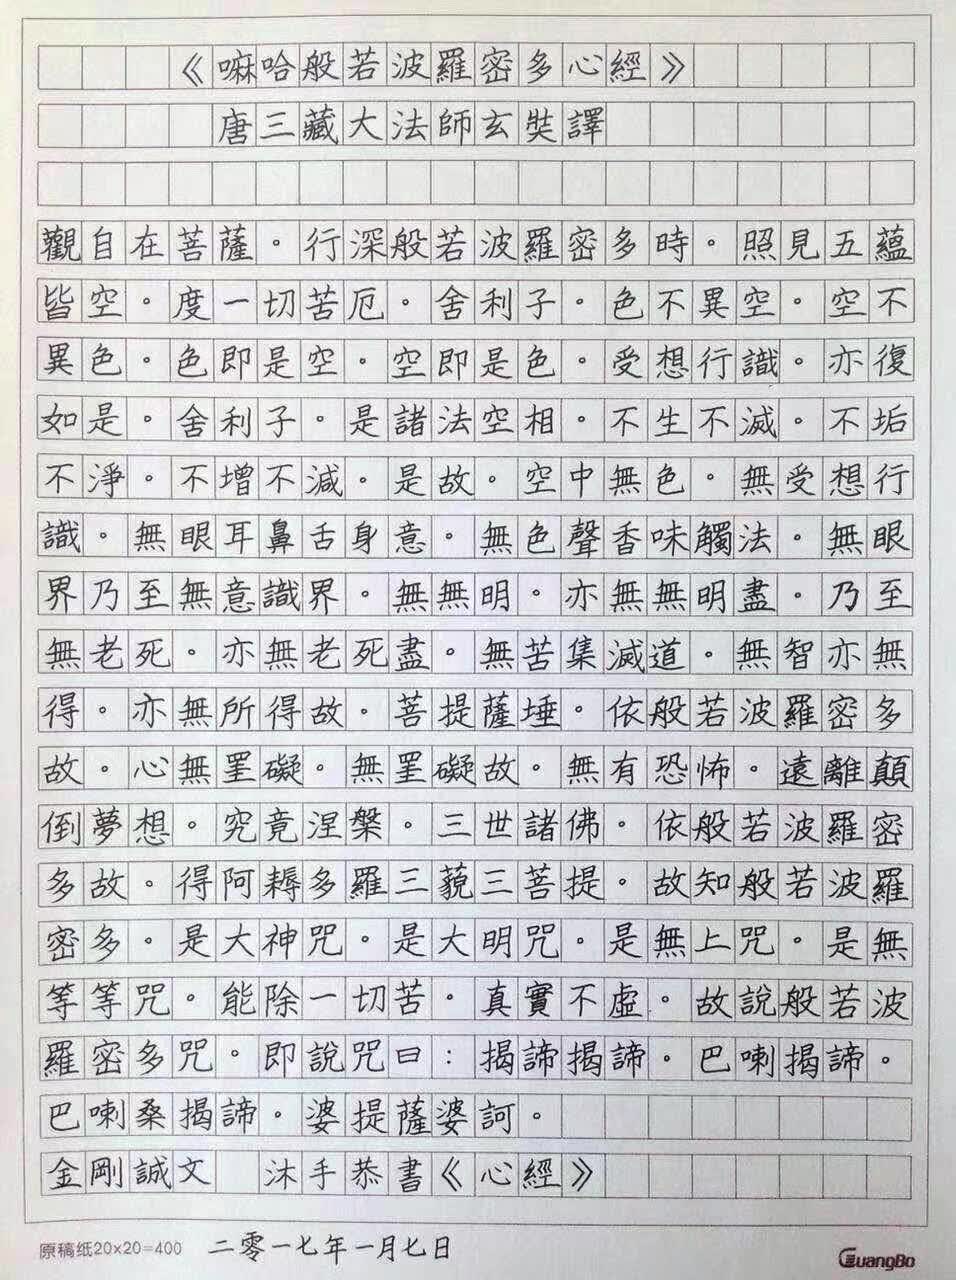 《嘛哈般若波羅密多心經》
唐三藏大法師玄奘譯
觀自在菩薩。行深般若波羅密多時。照見五蘊
皆空。度一切苦厄。舍利子。色不異空。空不
異色。色即是空。空即是色。受想行識。亦復
如是。舍利子。是諸法空相。不生不滅。不垢
不淨。不增不減。是故。空中無色。無受想行
識。無眼耳鼻舌身意。無色聲香味觸法。無眼
界乃至無意識界。無無明。亦無無明盡。乃至
無老死。亦無老死盡。無苦集滅道。無智亦無
得。亦無所得故。菩提薩埵。依般若波羅密多
故。心無罣礙。無罣礙故。無有恐怖。遠離顛
倒夢想。究竟涅槃。三世諸佛。依般若波羅密
多故。得阿耨多羅三藐三菩提。故知般若波羅
密多。是大神咒。是大明咒。是無上咒。是無
等等咒。能除一切苦。真實不虛。故說般若波
羅密多咒。即說咒曰：揭諦揭諦。巴喇揭諦。
巴喇桑揭諦。婆提薩婆訶。
金剛誠文 沐手恭書《心經》
原稿纸20×20=400 二零一七年一月七日 GuangBo